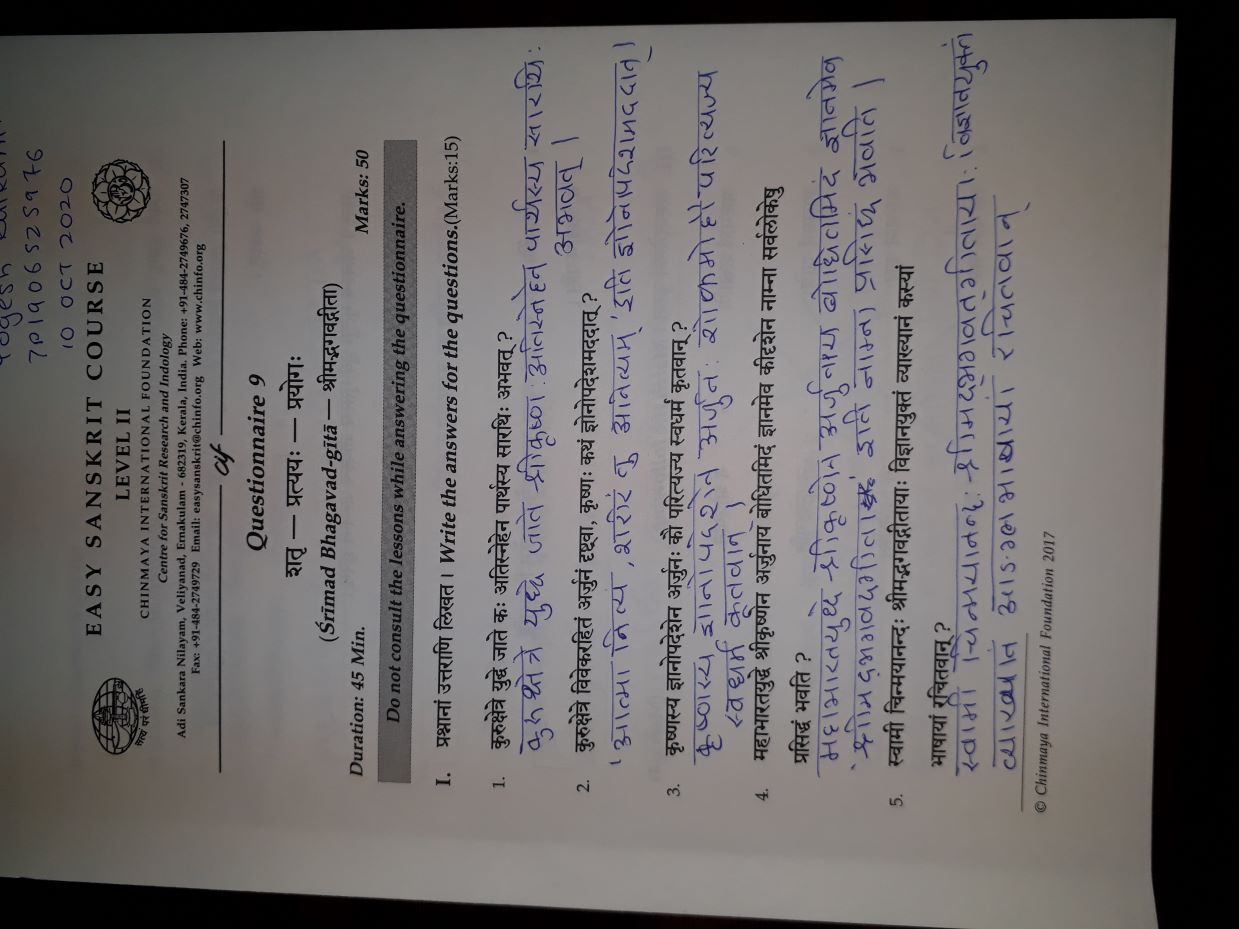 Yogesh
7P1906525976
10 OCT 2020
EASY SANSKRIT COURSE
LEVEL II
CHINMAYA INTERNATIONAL FOUNDATION
Centre for Sanskrit Research and Indology
Adi Sankara Nilayam, Veliyanad, Ernakulam - 682319, Kerala, India. Phone: +91-484-2749676, 2747307
Fax: +91-484-2749729 Email: easysanskrit@chinfo.org Web: www.chinfo.org
सत्यं परं धीमहि
cif
Questionnaire 9
शतृ — प्रत्ययः — प्रयोगः
(Śrīmad Bhagavad-gītā — श्रीमद्भगवद्गीता)
Duration: 45 Min. Marks: 50
Do not consult the lessons while answering the questionnaire.
I. प्रश्नानां उत्तराणि लिखत । Write the answers for the questions.(Marks:15)
1. कुरुक्षेत्रे युद्धे जाते कः अतिस्नेहेन पार्थस्य सारथिः अभवत् ?
कुरुक्षेत्रे युद्धे जाते श्रीकृष्णः अतिस्नेहेन पार्थस्य सारथिः
अभवत् ।
2. कुरुक्षेत्रे विवेकरहितं अर्जुनं दृष्ट्वा, कृष्णः कथं ज्ञोनोपदेशमददात् ?
'आत्मा नित्यं, शरीरं तु अनित्यम्' इति ज्ञोनोपदेशमददात् ।
3. कृष्णस्य ज्ञानोपदेशेन अर्जुनः कौ परित्यज्य स्वधर्मं कृतवान् ?
कृष्णस्य ज्ञानोपदेशेन अर्जुनः शोकमोहौ परित्यज्य
स्वधर्मं कृतवान् ।
4. महाभारतयुद्धे श्रीकृष्णेन अर्जुनाय बोधितमिदं ज्ञानमेव कीदृशेन नाम्ना सर्वलोकेषु
प्रसिद्धं भवति ?
महाभारतयुध्दे श्रीकृष्णेन अर्जुनाय बोधितमिदं ज्ञानमेव
'श्रीमद्भगवदगीता' इति नाम्ना प्रसिद्धं भवति ।
5. स्वामी चिन्मयानन्दः श्रीमद्भगवद्गीतायाः विज्ञानयुक्तं व्याख्यानं कस्यां
भाषायां रचितवान् ?
स्वामी चिन्मयानन्दः श्रीमद्भगवत्गीतायाः विज्ञानयुक्तं
व्याख्यानं आङ्ग्लभाषायां रचितवान्
© Chinmaya International Foundation 2017